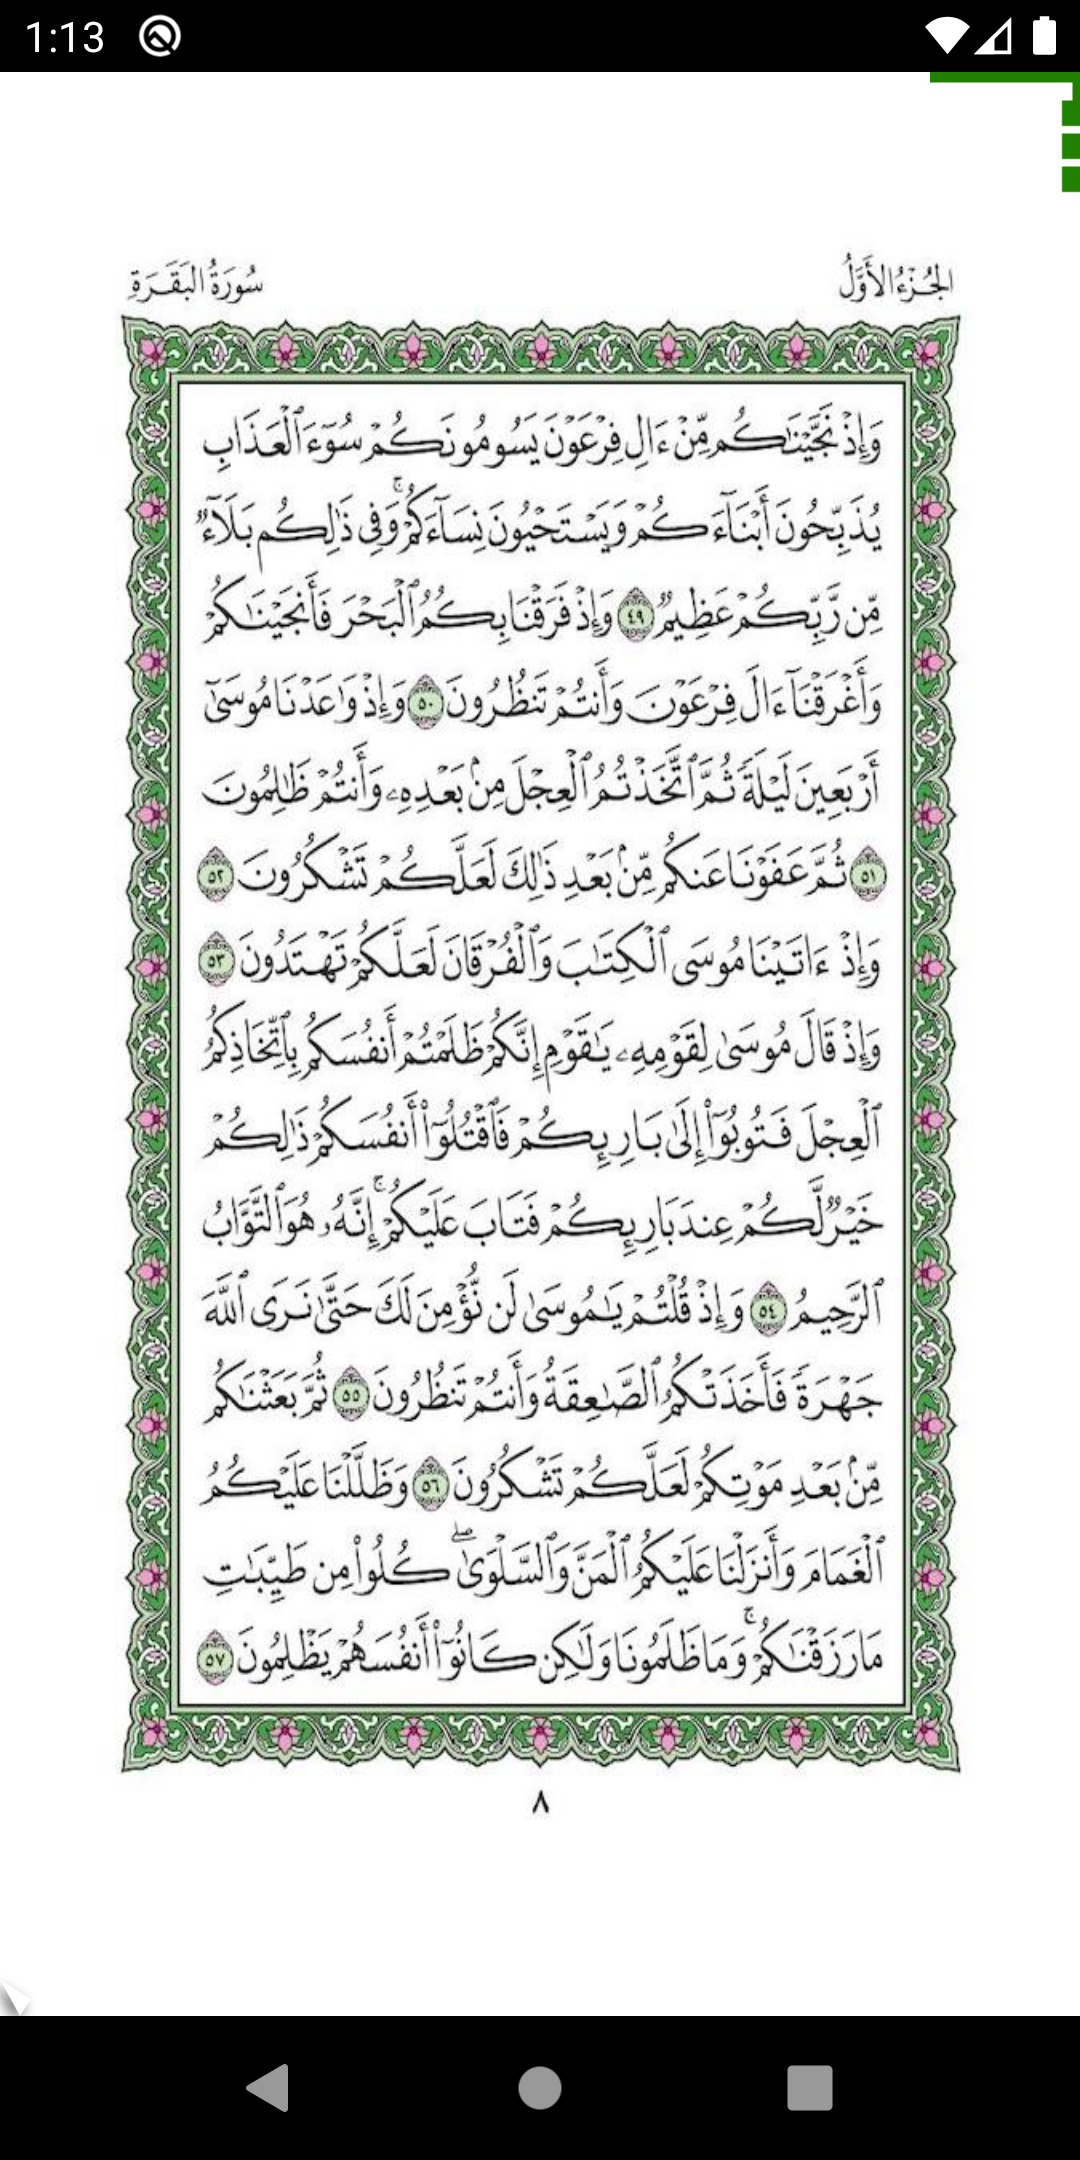 1:13
الجُزْءُ الأَوَّلُ
سُورَةُ البَقَرَةِ
وَإِذْ نَجَّيْنَٰكُم مِّنْ ءَالِ فِرْعَوْنَ يَسُومُونَكُمْ سُوٓءَ ٱلْعَذَابِ
يُذَبِّحُونَ أَبْنَآءَكُمْ وَيَسْتَحْيُونَ نِسَآءَكُمْ ۚ وَفِى ذَٰلِكُم بَلَآءٌ
مِّن رَّبِّكُمْ عَظِيمٌ ٤٩ وَإِذْ فَرَقْنَا بِكُمُ ٱلْبَحْرَ فَأَنجَيْنَٰكُمْ
وَأَغْرَقْنَآ ءَالَ فِرْعَوْنَ وَأَنتُمْ تَنظُرُونَ ٥٠ وَإِذْ وَٰعَدْنَا مُوسَىٰٓ
أَرْبَعِينَ لَيْلَةً ثُمَّ ٱتَّخَذْتُمُ ٱلْعِجْلَ مِنۢ بَعْدِهِۦ وَأَنتُمْ ظَٰلِمُونَ
٥١ ثُمَّ عَفَوْنَا عَنكُم مِّنۢ بَعْدِ ذَٰلِكَ لَعَلَّكُمْ تَشْكُرُونَ ٥٢
وَإِذْ ءَاتَيْنَا مُوسَى ٱلْكِتَٰبَ وَٱلْفُرْقَانَ لَعَلَّكُمْ تَهْتَدُونَ ٥٣
وَإِذْ قَالَ مُوسَىٰ لِقَوْمِهِۦ يَٰقَوْمِ إِنَّكُمْ ظَلَمْتُمْ أَنفُسَكُم بِٱتِّخَاذِكُمُ
ٱلْعِجْلَ فَتُوبُوٓا۟ إِلَىٰ بَارِئِكُمْ فَٱقْتُلُوٓا۟ أَنفُسَكُمْ ذَٰلِكُمْ
خَيْرٌ لَّكُمْ عِندَ بَارِئِكُمْ فَتَابَ عَلَيْكُمْ ۚ إِنَّهُۥ هُوَ ٱلتَّوَّابُ
ٱلرَّحِيمُ ٥٤ وَإِذْ قُلْتُمْ يَٰمُوسَىٰ لَن نُّؤْمِنَ لَكَ حَتَّىٰ نَرَى ٱللَّهَ
جَهْرَةً فَأَخَذَتْكُمُ ٱلصَّٰعِقَةُ وَأَنتُمْ تَنظُرُونَ ٥٥ ثُمَّ بَعَثْنَٰكُم
مِّنۢ بَعْدِ مَوْتِكُمْ لَعَلَّكُمْ تَشْكُرُونَ ٥٦ وَظَلَّلْنَا عَلَيْكُمُ
ٱلْغَمَامَ وَأَنزَلْنَا عَلَيْكُمُ ٱلْمَنَّ وَٱلسَّلْوَىٰ ۖ كُلُوا۟ مِن طَيِّبَٰتِ
مَا رَزَقْنَٰكُمْ ۚ وَمَا ظَلَمُونَا وَلَٰكِن كَانُوٓا۟ أَنفُسَهُمْ يَظْلِمُونَ ٥٧
٨